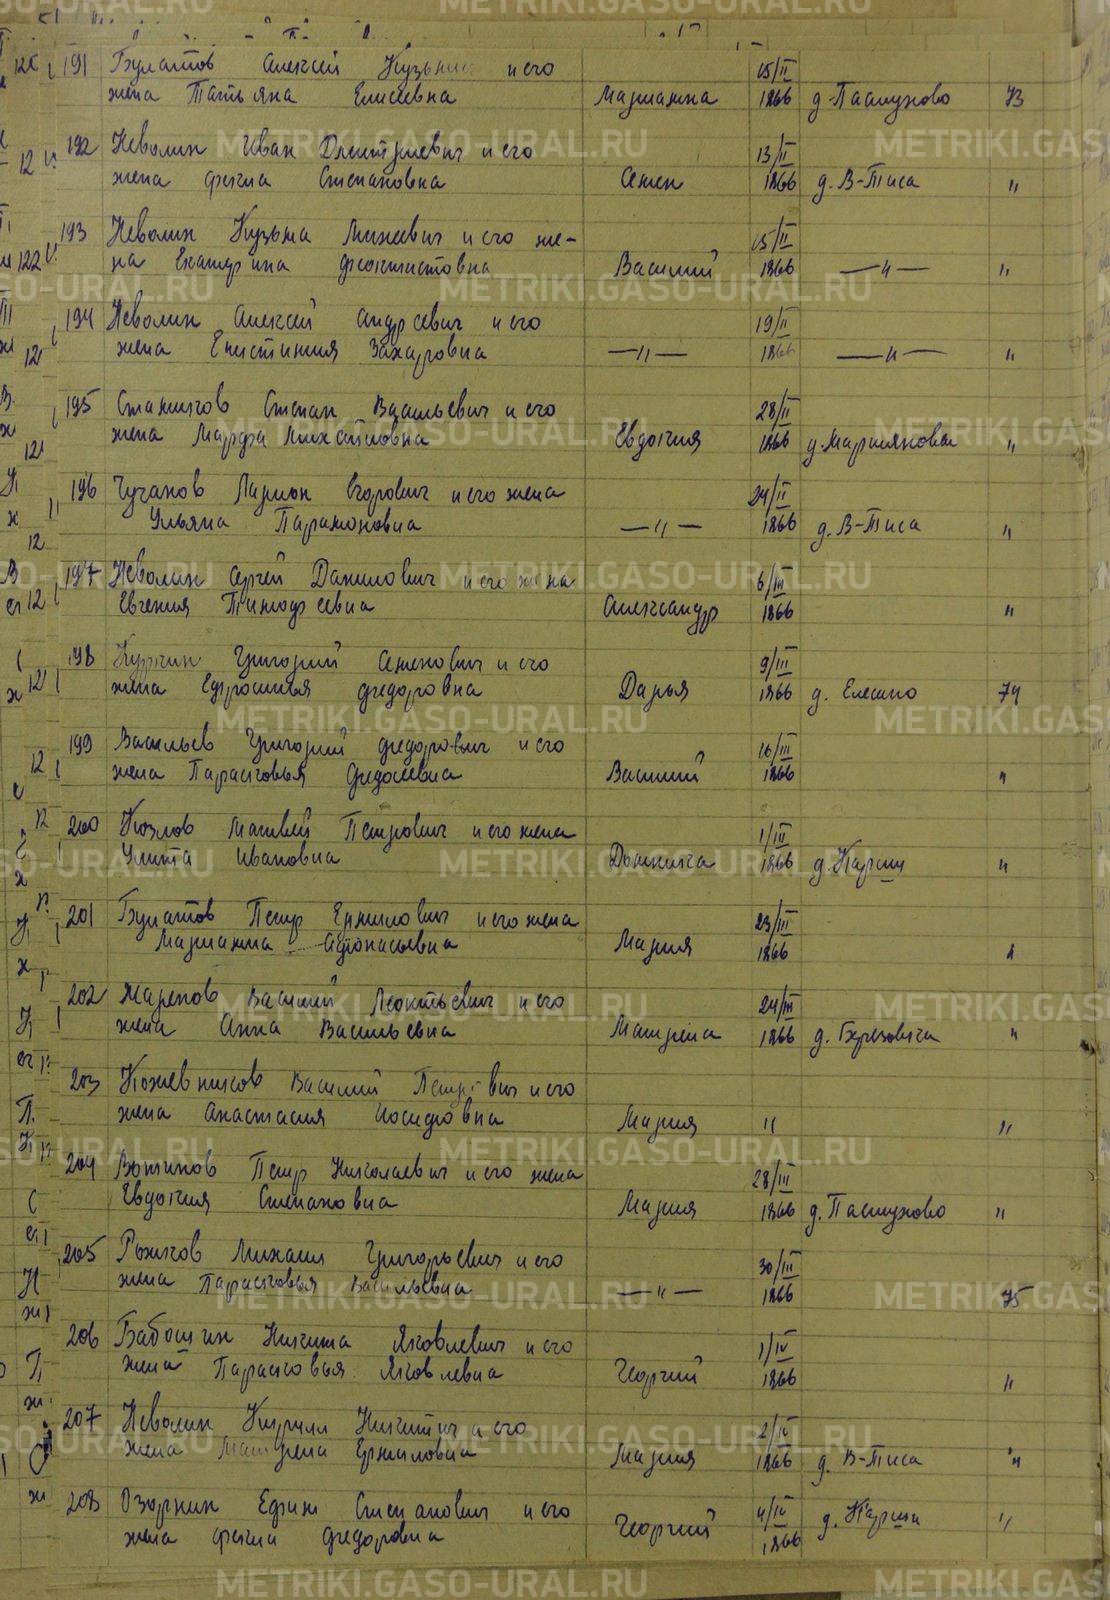 191 Булатов Алексей Кузьмич и его 15/II
жена Татьяна Елисеевна Марианна 1866 д. Пастухово 73
192 Неволин Иван Дмитриевич и его 13/II
жена Фекла Степановна Семен 1866 д. В-Тиса "
193 Неволин Кузьма Михеевич и его же- 15/II
на Екатерина Феоктистовна Василий 1866 —"— "
194 Неволин Алексей Андреевич и его 19/II
жена Епистиния Захаровна —"— 1866 —"— "
195 Станигов Степан Васильевич и его 28/II
жена Марфа Михайловна Евдокия 1866 д. Марияновы "
196 Чуганов Ларион Егорович и его жена 24/II
Ульяна Парамоновна —"— 1866 д. В-Тиса "
197 Неволин Сергей Данилович и его жена 6/III
Евгения Тимофеевна Александр 1866 "
198 Григорий Семенович и его 9/III
жена Ефросинья Федоровна Дарья 1866 д. Елесино 74
199 Васильев Григорий Федорович и его 16/III
жена Парасковья Федосеевна Василий 1866 "
200 Козлов Матвей Петрович и его жена 1/III
Улита Ивановна Домника 1866 д. Карши "
201 Булатов Петр Ермилович и его жена 23/III
Марианна Афонасьевна Мария 1866 "
202 Жарепов Василий Леонтьевич и его 24/III
жена Анна Васильевна Матрена 1866 д. Березовка "
203 Кожевников Василий Петрович и его
жена Анастасия Иосифовна Мария " "
204 Вотинов Петр Николаевич и его жена 28/III
Евдокия Степановна Мария 1866 д. Пастухово "
205 Рожков Михаил Григорьевич и его 30/III
жена Парасковья Васильевна —"— 1866 75
206 Бабошин Никита Яковлевич и его 1/IV
жена Парасковья Яковлевна Георгий 1866 "
207 Неволин Кирилл Никитич и его 2/IV
жена Матрена Ермиловна Мария 1866 д. В-Тиса "
208 Озорнин Ефим Степанович и его 4/IV
жена Фекла Федоровна Георгий 1866 д. Карши "
METRIKI.GASO-URAL.RU